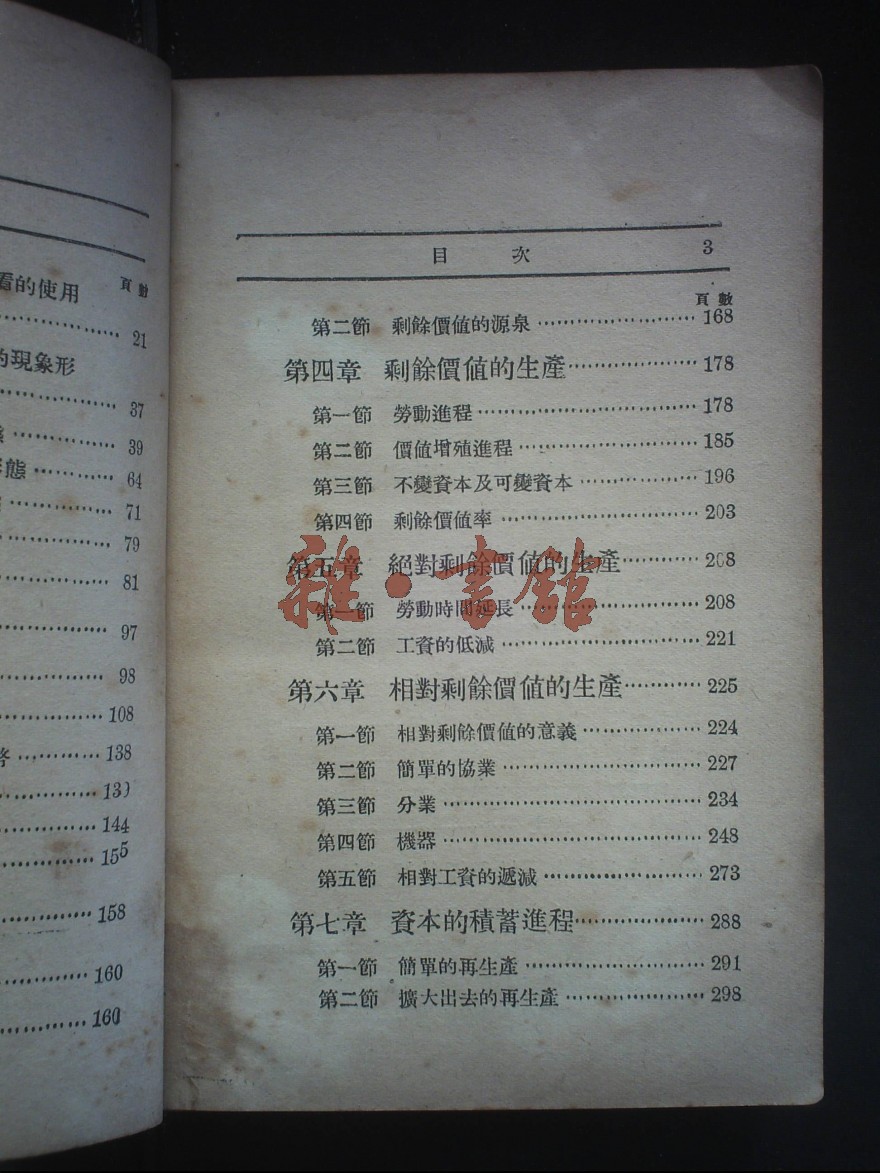 看的使用 頁數
21
的現象形
37
39
形態 64
71
79
81
97
98
108
138
13)
144
155
158
160
160
目 次 3
頁數
第二節 剩餘價値的源泉 168
第四章 剩餘價値的生產 178
第一節 勞動進程 178
第二節 價値增殖進程 185
第三節 不變資本及可變資本 196
第四節 剩餘價値率 203
第五章 絕對剩餘價値的生產 208
第一節 勞動時間延長 208
第二節 工資的低減 221
第六章 相對剩餘價値的生產 225
第一節 相對剩餘價値的意義 224
第二節 簡單的協業 227
第三節 分業 234
第四節 機器 248
第五節 相對工資的遞減 273
第七章 資本的積蓄進程 288
第一節 簡單的再生產 291
第二節 擴大出去的再生產 298
雜·書館